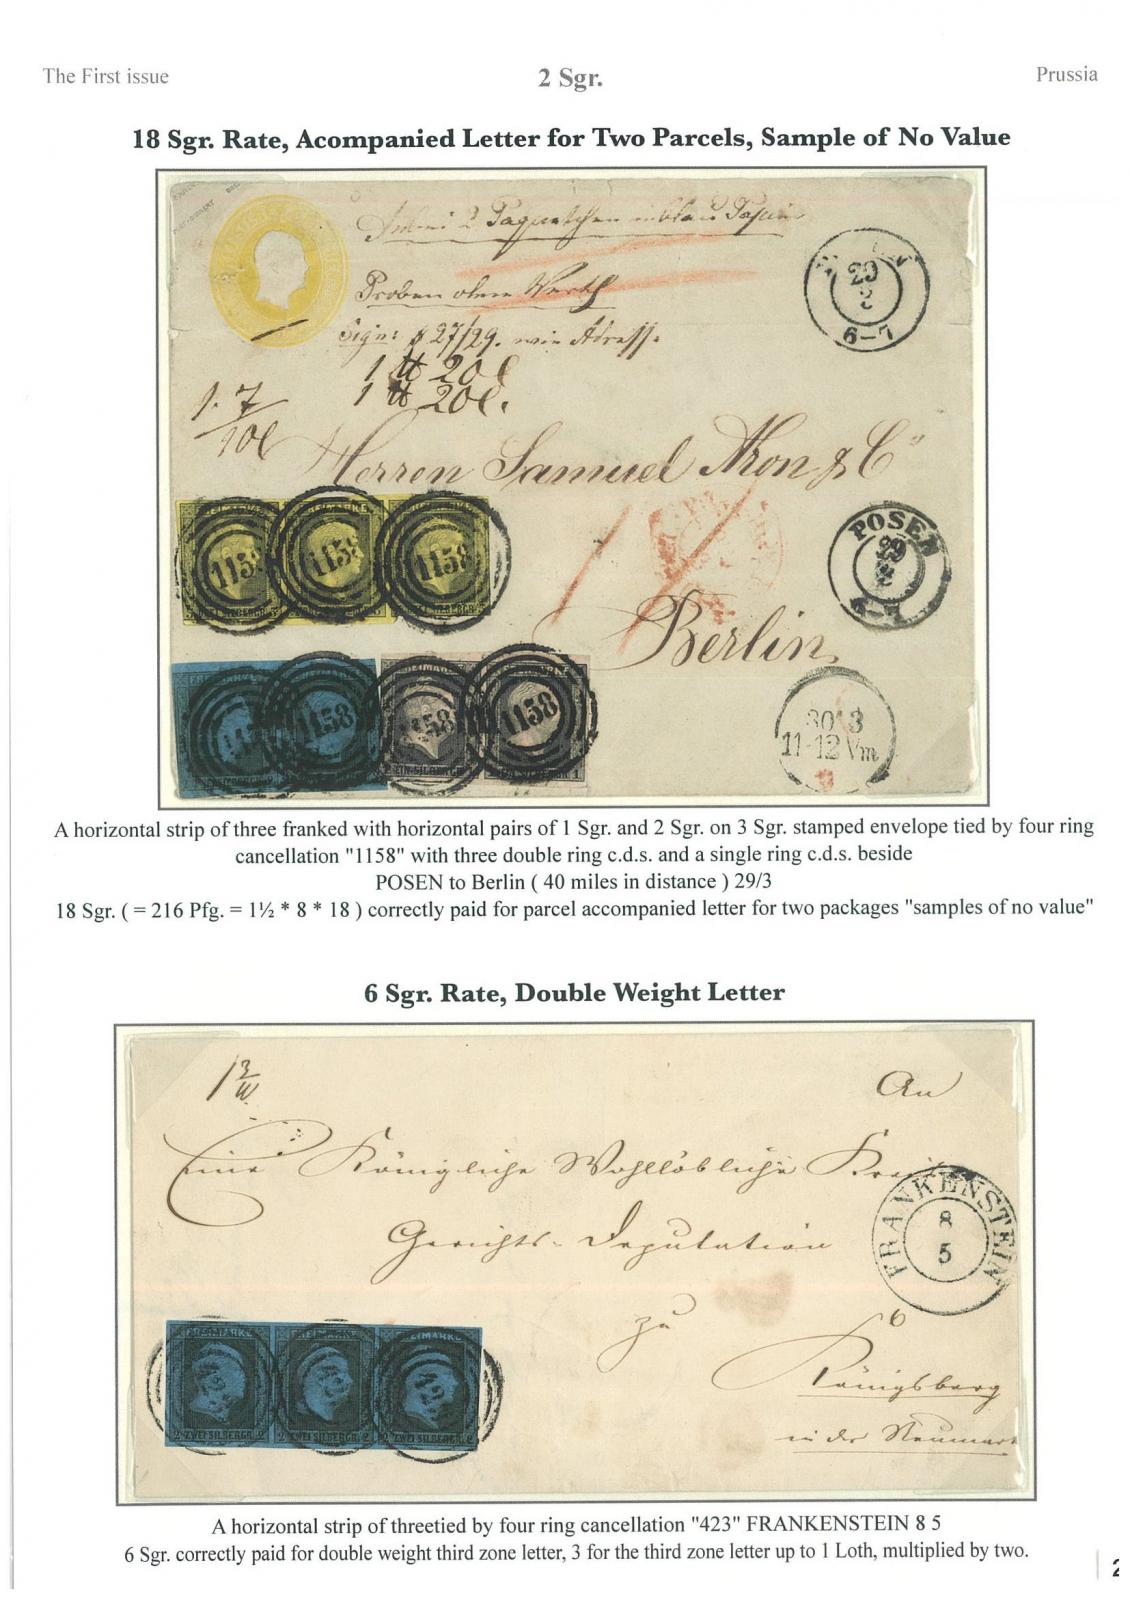 The First issue
2 Sgr.
Prussia
18 Sgr. Rate, Acompanied Letter for Two Parcels, Sample of No Value
Proben ohne Werth
Sign: 27/29. wie Adresse
29
6-7
Herren Samuel & C°
FREIMARKE
1158
1158
1158
POSEN
29
Berlin
1158
1158
1158
1158
30 3
11-12 Vm
A horizontal strip of three franked with horizontal pairs of 1 Sgr. and 2 Sgr. on 3 Sgr. stamped envelope tied by four ring
cancellation "1158" with three double ring c.d.s. and a single ring c.d.s. beside
POSEN to Berlin ( 40 miles in distance ) 29/3
18 Sgr. ( = 216 Pfg. = 1½ * 8 * 18 ) correctly paid for parcel accompanied letter for two packages "samples of no value"
6 Sgr. Rate, Double Weight Letter
An
Eine Königliche Wohllöbliche Kreis
FRANKENSTEIN
8
5
Gerichts-Deputation
zu
6
Königsberg
in der Neumark
FREIMARKE FREIMARKE FREIMARKE
423
2 ZWEI SILBERGR. 2 2 ZWEI SILBERGR. 2 2 ZWEI SILBERGR. 2
A horizontal strip of threetied by four ring cancellation "423" FRANKENSTEIN 8 5
6 Sgr. correctly paid for double weight third zone letter, 3 for the third zone letter up to 1 Loth, multiplied by two.